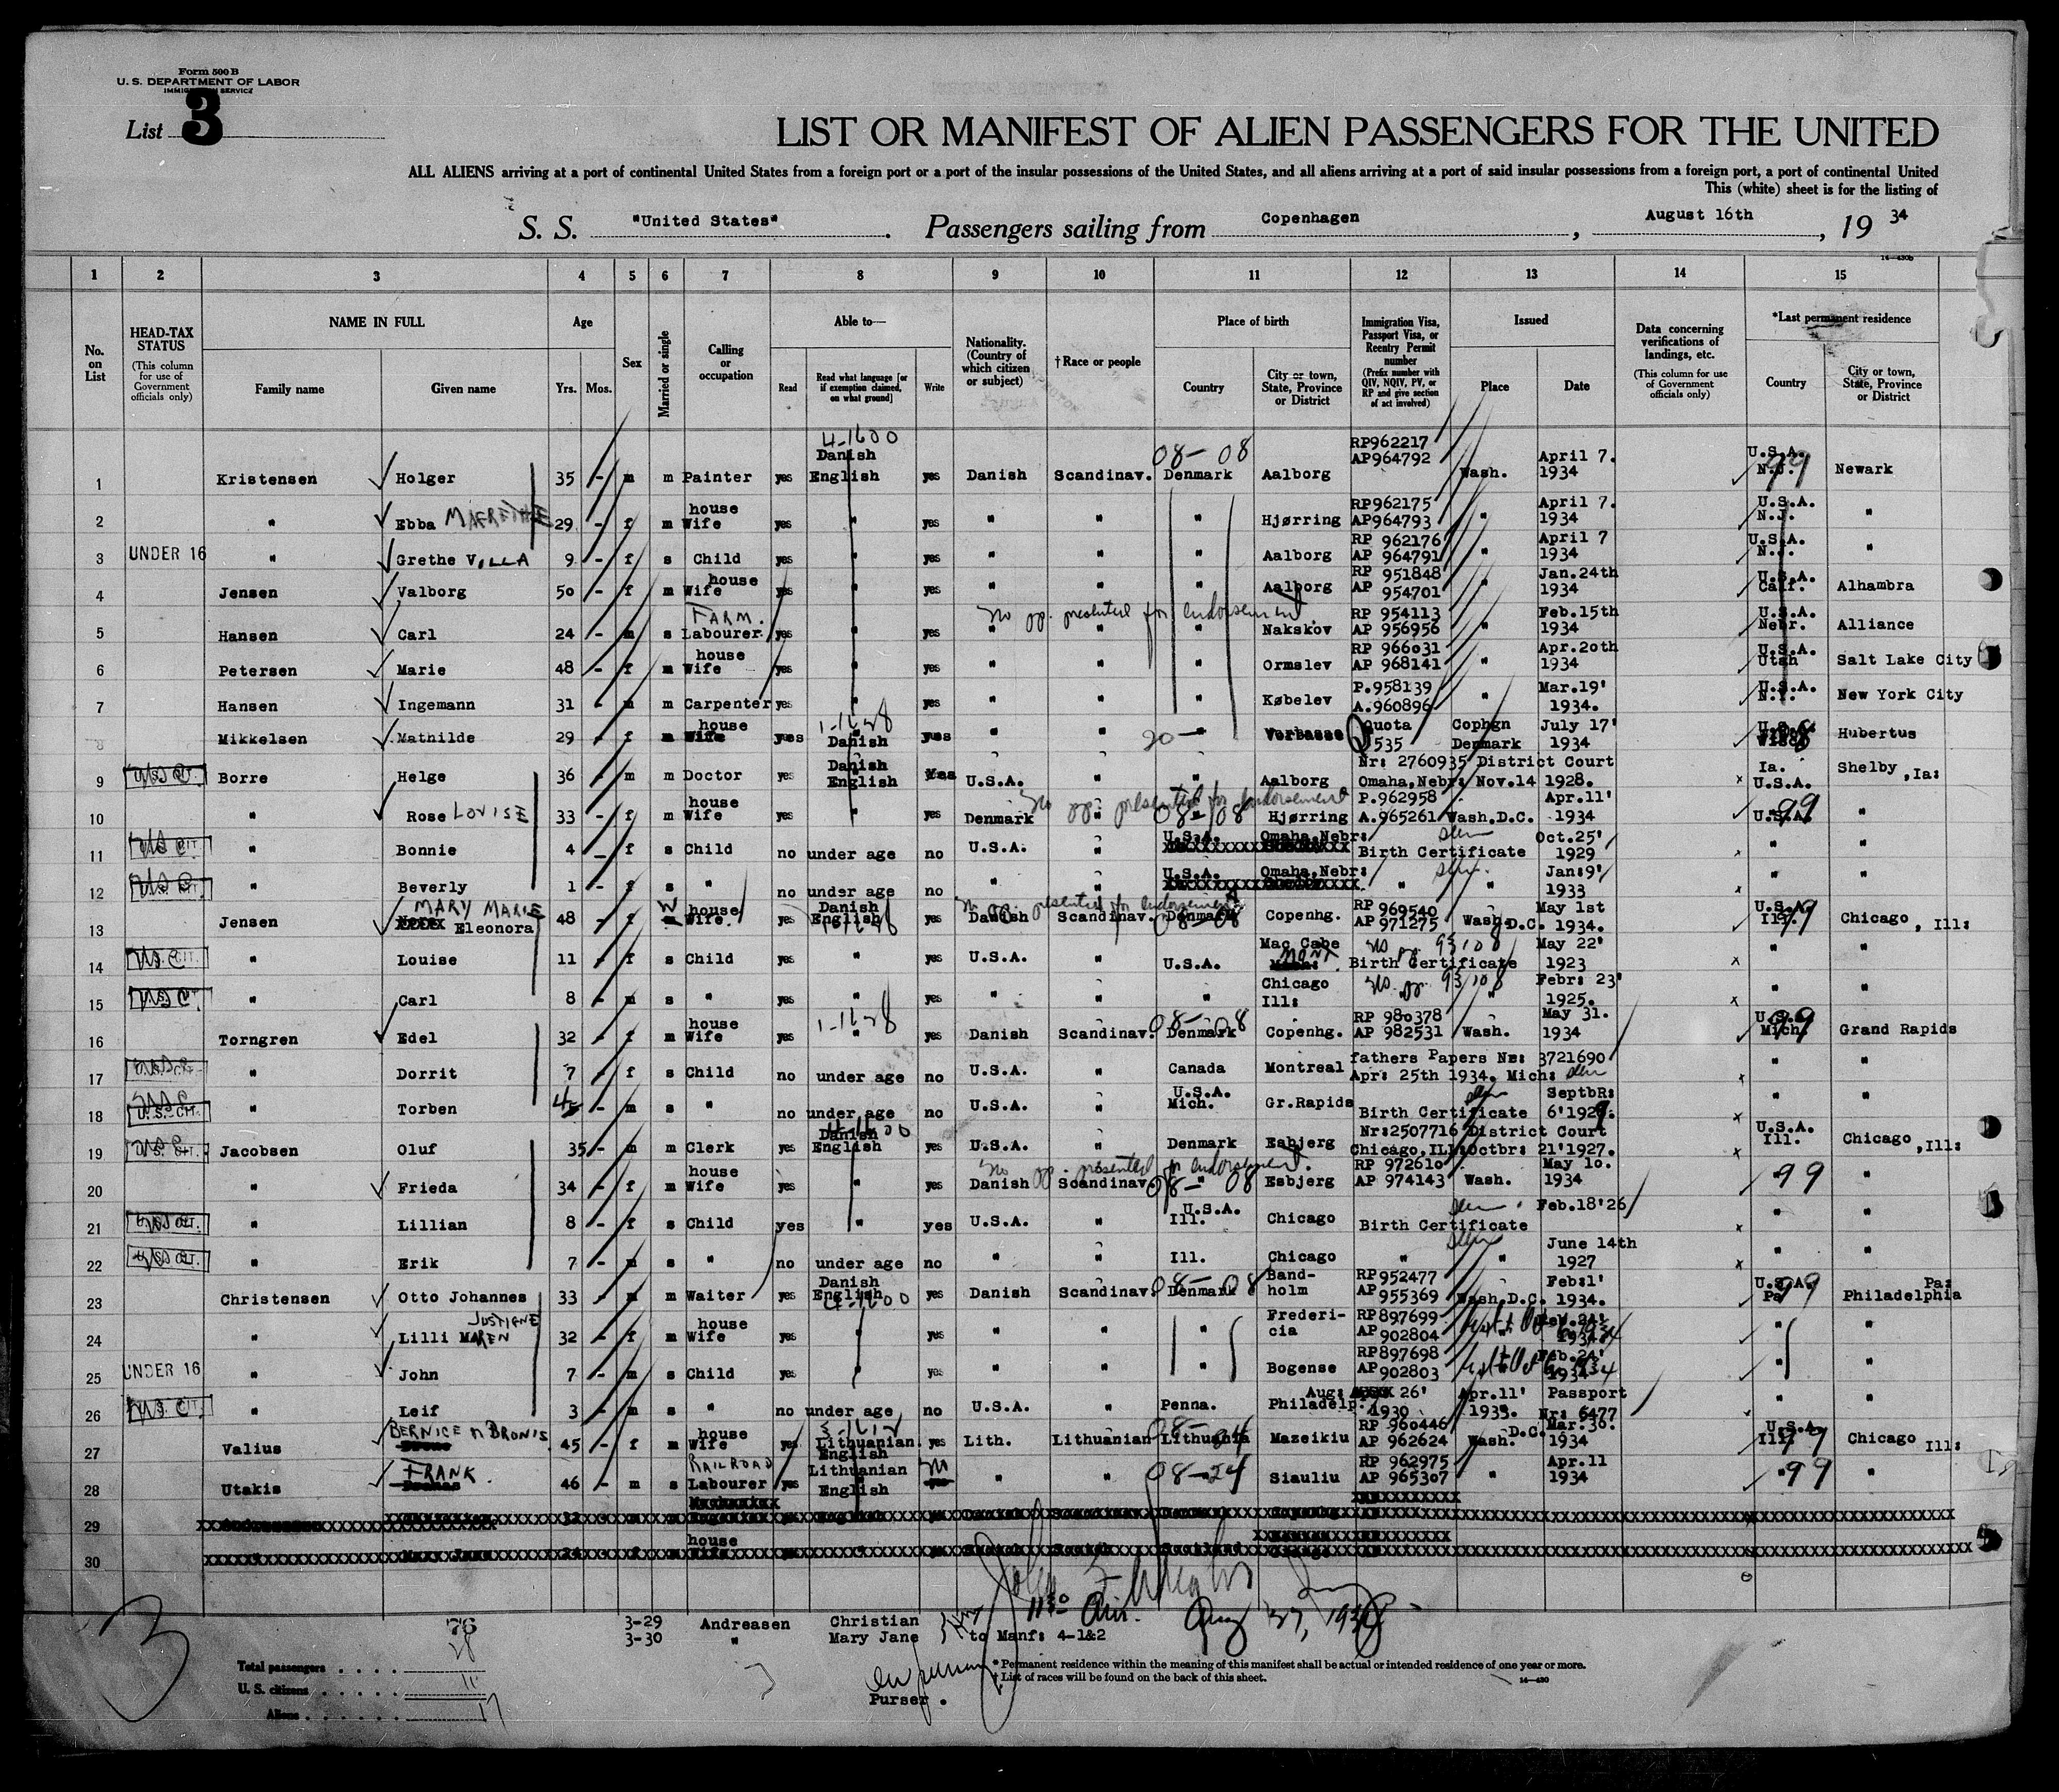 Form 500 B
U. S. DEPARTMENT OF LABOR
IMMIGRATION SERVICE
List 3
LIST OR MANIFEST OF ALIEN PASSENGERS FOR THE UNITED
ALL ALIENS arriving at a port of continental United States from a foreign port or a port of the insular possessions of the United States, and all aliens arriving at a port of said insular possessions from a foreign port, a port of continental United
This (white) sheet is for the listing of
S. S. "United States". Passengers sailing from Copenhagen, August 16th, 19 34
14—430b
1 2 3 4 5 6 7 8 9 10 11 12 13 14 15
No. on List
HEAD-TAX STATUS (This column for use of Government officials only)
NAME IN FULL Family name Given name
Age Yrs. Mos.
Sex
Married or single
Calling or occupation
Able to— Read Read what language [or if exemption claimed, on what ground] Write
Nationality. (Country of which citizen or subject)
†Race or people
Place of birth Country City or town, State, Province or District
Immigration Visa, Passport Visa, or Reentry Permit number (Prefix number with QIV, NQIV, PV, or RP and give section of act involved)
Issued Place Date
Data concerning verifications of landings, etc. (This column for use of Government officials only)
*Last permanent residence Country City or town, State, Province or District
1 Kristensen Holger 35 - m m Painter yes 4-1600 Danish English yes Danish Scandinav. 08-08 Denmark Aalborg RP962217 AP964792 Wash. April 7. 1934 U.S.A. N.J. 99 Newark
2 " Ebba MAERETHE 29 - f m house Wife yes " yes " " " Hjørring RP962175 AP964793 " April 7. 1934 U.S.A. N.J. "
3 UNDER 16 " Grethe VILLA 9 - f s Child yes " yes " " " Aalborg RP 962176 AP 964791 " April 7 1934 U.S.A. N.J. "
4 Jensen Valborg 50 - f m house Wife yes " yes " " " Aalborg RP 951848 AP 954701 " Jan.24th 1934 U.S.A. Calif. Alhambra
No pp. presented for endorsement.
5 Hansen Carl 24 - m s FARM. Labourer. yes " yes " " " Nakskov RP 954113 AP 956956 " Feb.15th 1934 U.S.A. Nebr. Alliance
6 Petersen Marie 48 - f m house Wife yes " yes " " " Ormslev RP 966031 AP 968141 " Apr.20th 1934 U.S.A. Utah Salt Lake City
7 Hansen Ingemann 31 - m m Carpenter yes " yes " " " Købelev P.958139 A.960896 " Mar.19' 1934. U.S.A. N.Y. New York City
8 Mikkelsen Mathilde 29 - f m house Wife yes 1-1628 Danish yes " " 20- " Vorbasse Quota 535 Cophgn Denmark July 17' 1934 U.S.A. Wisc. Hubertus
9 U.S. CIT. Borre Helge 36 - m m Doctor yes Danish English Yes U.S.A. " " Aalborg Nr: 2760935 District Court Omaha,Nebr: Nov.14 1928. x Ia. U.S.A. Shelby,Ia:
No pp. presented for endorsement
10 " Rose LOVISE 33 - f m house Wife yes " yes Denmark " 08-08 Hjørring P.962958 A.965261 Wash.D.C. Apr.11' 1934 U.S.A. 99 "
11 U.S. CIT. " Bonnie 4 - f s Child no under age no U.S.A. " U.S.A. Omaha,Nebr: Birth Certificate Oct.25' 1929 x " "
12 U.S. CIT. " Beverly 1 - f s " no under age no " " U.S.A. Omaha,Nebr: " " Jan:9' 1933 x " "
No pp. presented for endorsement
13 Jensen MARY MARIE Eleonora 48 - f W house Wife. yes Danish English yes Danish Scandinav. Denmark 08-08 Copenhg. RP 969540 AP 971275 Wash.D.C. May 1st 1934. U.S.A. Ill. 99 Chicago, Ill:
14 U.S. CIT. " Louise 11 - f s Child yes " yes U.S.A. " U.S.A. Mac Cabe MONT. No pp. 93108 Birth Certificate May 22' 1923 x " "
15 U.S. CIT. " Carl 8 - m s " yes " yes " " " Chicago Ill: No pp. 93108 " Febr: 23' 1925. x " "
16 Torngren Edel 32 - f m house Wife yes 1-1628 " yes Danish Scandinav. 08-08 Denmark Copenhg. RP 980378 AP 982531 Wash. May 31. 1934 U.S.A. Mich. 99 Grand Rapids
17 U.S. CIT. " Dorrit 7 - f s Child no under age no U.S.A. " Canada Montreal fathers Papers Nr: 3721690 Apr: 25th 1934. Mich: x " "
18 U.S. CIT. " Torben 4 - m s " no under age no U.S.A. " U.S.A. Mich. Gr.Rapids Birth Certificate SeptbR: 6'1929. x " "
19 U.S. CIT. Jacobsen Oluf 35 - m m Clerk yes 4-1600 Danish English yes U.S.A. " Denmark Esbjerg Nr:2507716 District Court Chicago,Ill: Octbr: 21'1927. x U.S.A. Ill. Chicago,Ill:
No pp. presented for endorsement.
20 " Frieda 34 - f m house Wife yes " yes Danish Scandinav. 08-08 " Esbjerg RP 972610 AP 974143 Wash. May 10. 1934 " 99 "
21 U.S. CIT. " Lillian 8 - f s Child yes " yes U.S.A. " U.S.A. Ill. Chicago Birth Certificate Feb.18'26 x " "
22 U.S. CIT. " Erik 7 - m s " no under age no " " Ill. Chicago " " June 14th 1927 x " "
23 Christensen Otto Johannes 33 - m m Waiter yes Danish English 4-1600 yes Danish Scandinav. 08-08 Denmark Band-holm RP 952477 AP 955369 Wash.D.C. Feb:1' 1934. U.S.A. Pa 99 Pa: Philadelphia
24 " Lilli MAREN JUSTIGNE 32 - f m house Wife yes " yes " " " Frederi-cia RP897699 AP 902804 1934 " "
25 UNDER 16 " John 7 - m s Child yes " yes " " " Bogense RP897698 AP 902803 Feb.24' 1934 " "
26 U.S. CIT. " Leif 3 - m s " no under age no U.S.A. " Penna. Philadelp. Aug: 26' 1930 Apr.11' 1933. Passport Nr: 6477 " "
27 Valius BERNICE n BRONIS 45 - f m house Wife yes 3-1612 Lithuanian. English yes Lith. Lithuanian 08-24 Lithuania Mazeikiu RP 960446 AP 962624 Wash. D.C. Mar.30. 1934 U.S.A. Ill: 99 Chicago Ill:
28 Utakis FRANK. 46 - m s RAILROAD Labourer yes Lithuanian English No " " 08-24 Siauliu RP 962975 AP 965307 " Apr.11 1934 " 99 "
29
30 " Mary Jane 24 - f m house Wife
1130 Am. Aug 27, 1934
3-29 Andreasen Christian
3-30 " Mary Jane to Manf: 4-1&2
3
76
Total passengers 28
U. S. citizens 11
Aliens 17
Purser.
* Permanent residence within the meaning of this manifest shall be actual or intended residence of one year or more.
† List of races will be found on the back of this sheet.
14—430